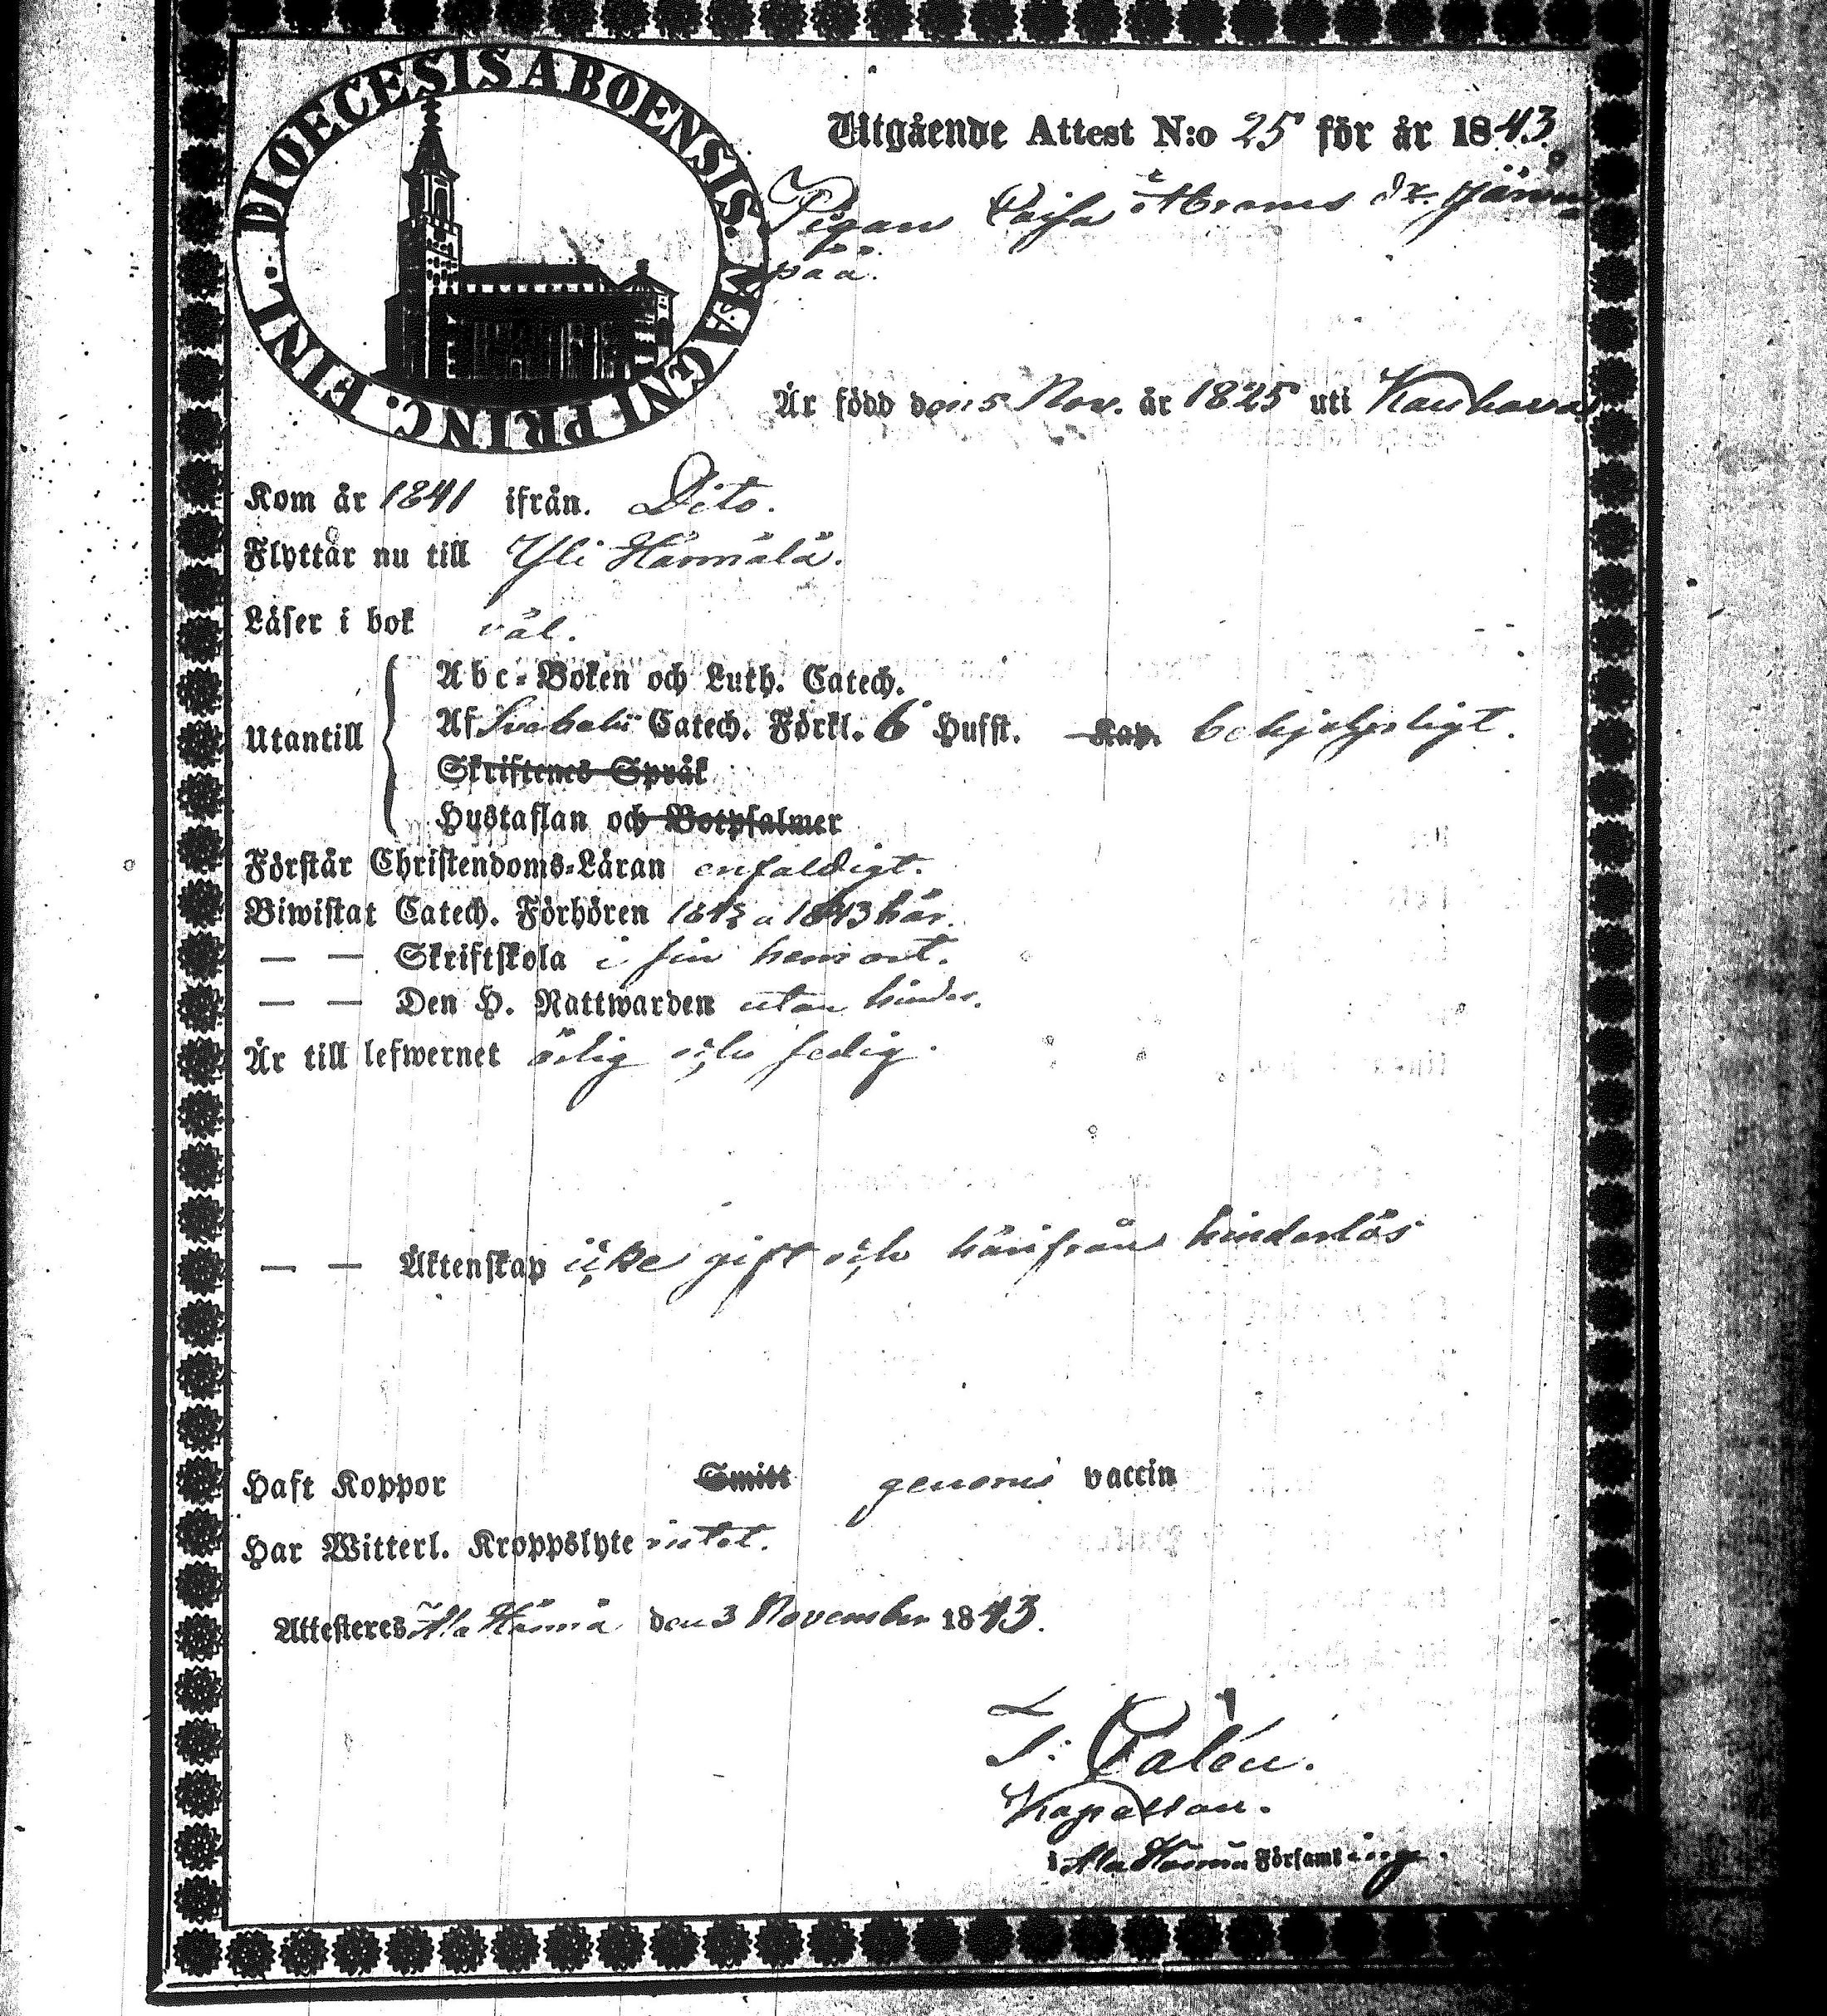 DIOECESIS ABOENSIS. MAGNI PRINC. FINL.
Utgående Attest N:o 25 för år 1843.
Pigan Caisa Abrams dr.
pää.
Är född den 5 Nov. år 1825 uti Kauhava
Kom år 1841 ifrån. Dito.
Flyttar nu till Yli Härmälä.
Läser i bok väl.
Abc-Boken och Luth. Catech.
Utantill Af Svebelii Catech. Förkl. 6 Hufst. Kap. behjelpligt.
Skriftenes Språk
Hustaflan och Botpsalmer
Förstår Christendoms-Läran enfaldigt.
Biwistat Catech. Förhören 1842 a 1843 här.
— — Skriftskola i sin hemort.
— — Den H. Nattwarden utan hinder.
Är till lefwernet ärlig och sedig.
— — Äktenskap icke gift och härifrån hinderlös
Haft Koppor Smitt genom vaccin
Har Witterl. Kroppslyte intet.
Attesteres Ala Härmä den 3 November 1843.
Kapellan.
i Ala Härmä Församlinge.